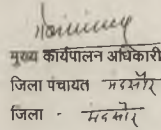 मुख्य कार्यपालन अधिकारी
जिला पंचायत मंदसौर
जिला - मंदसौर